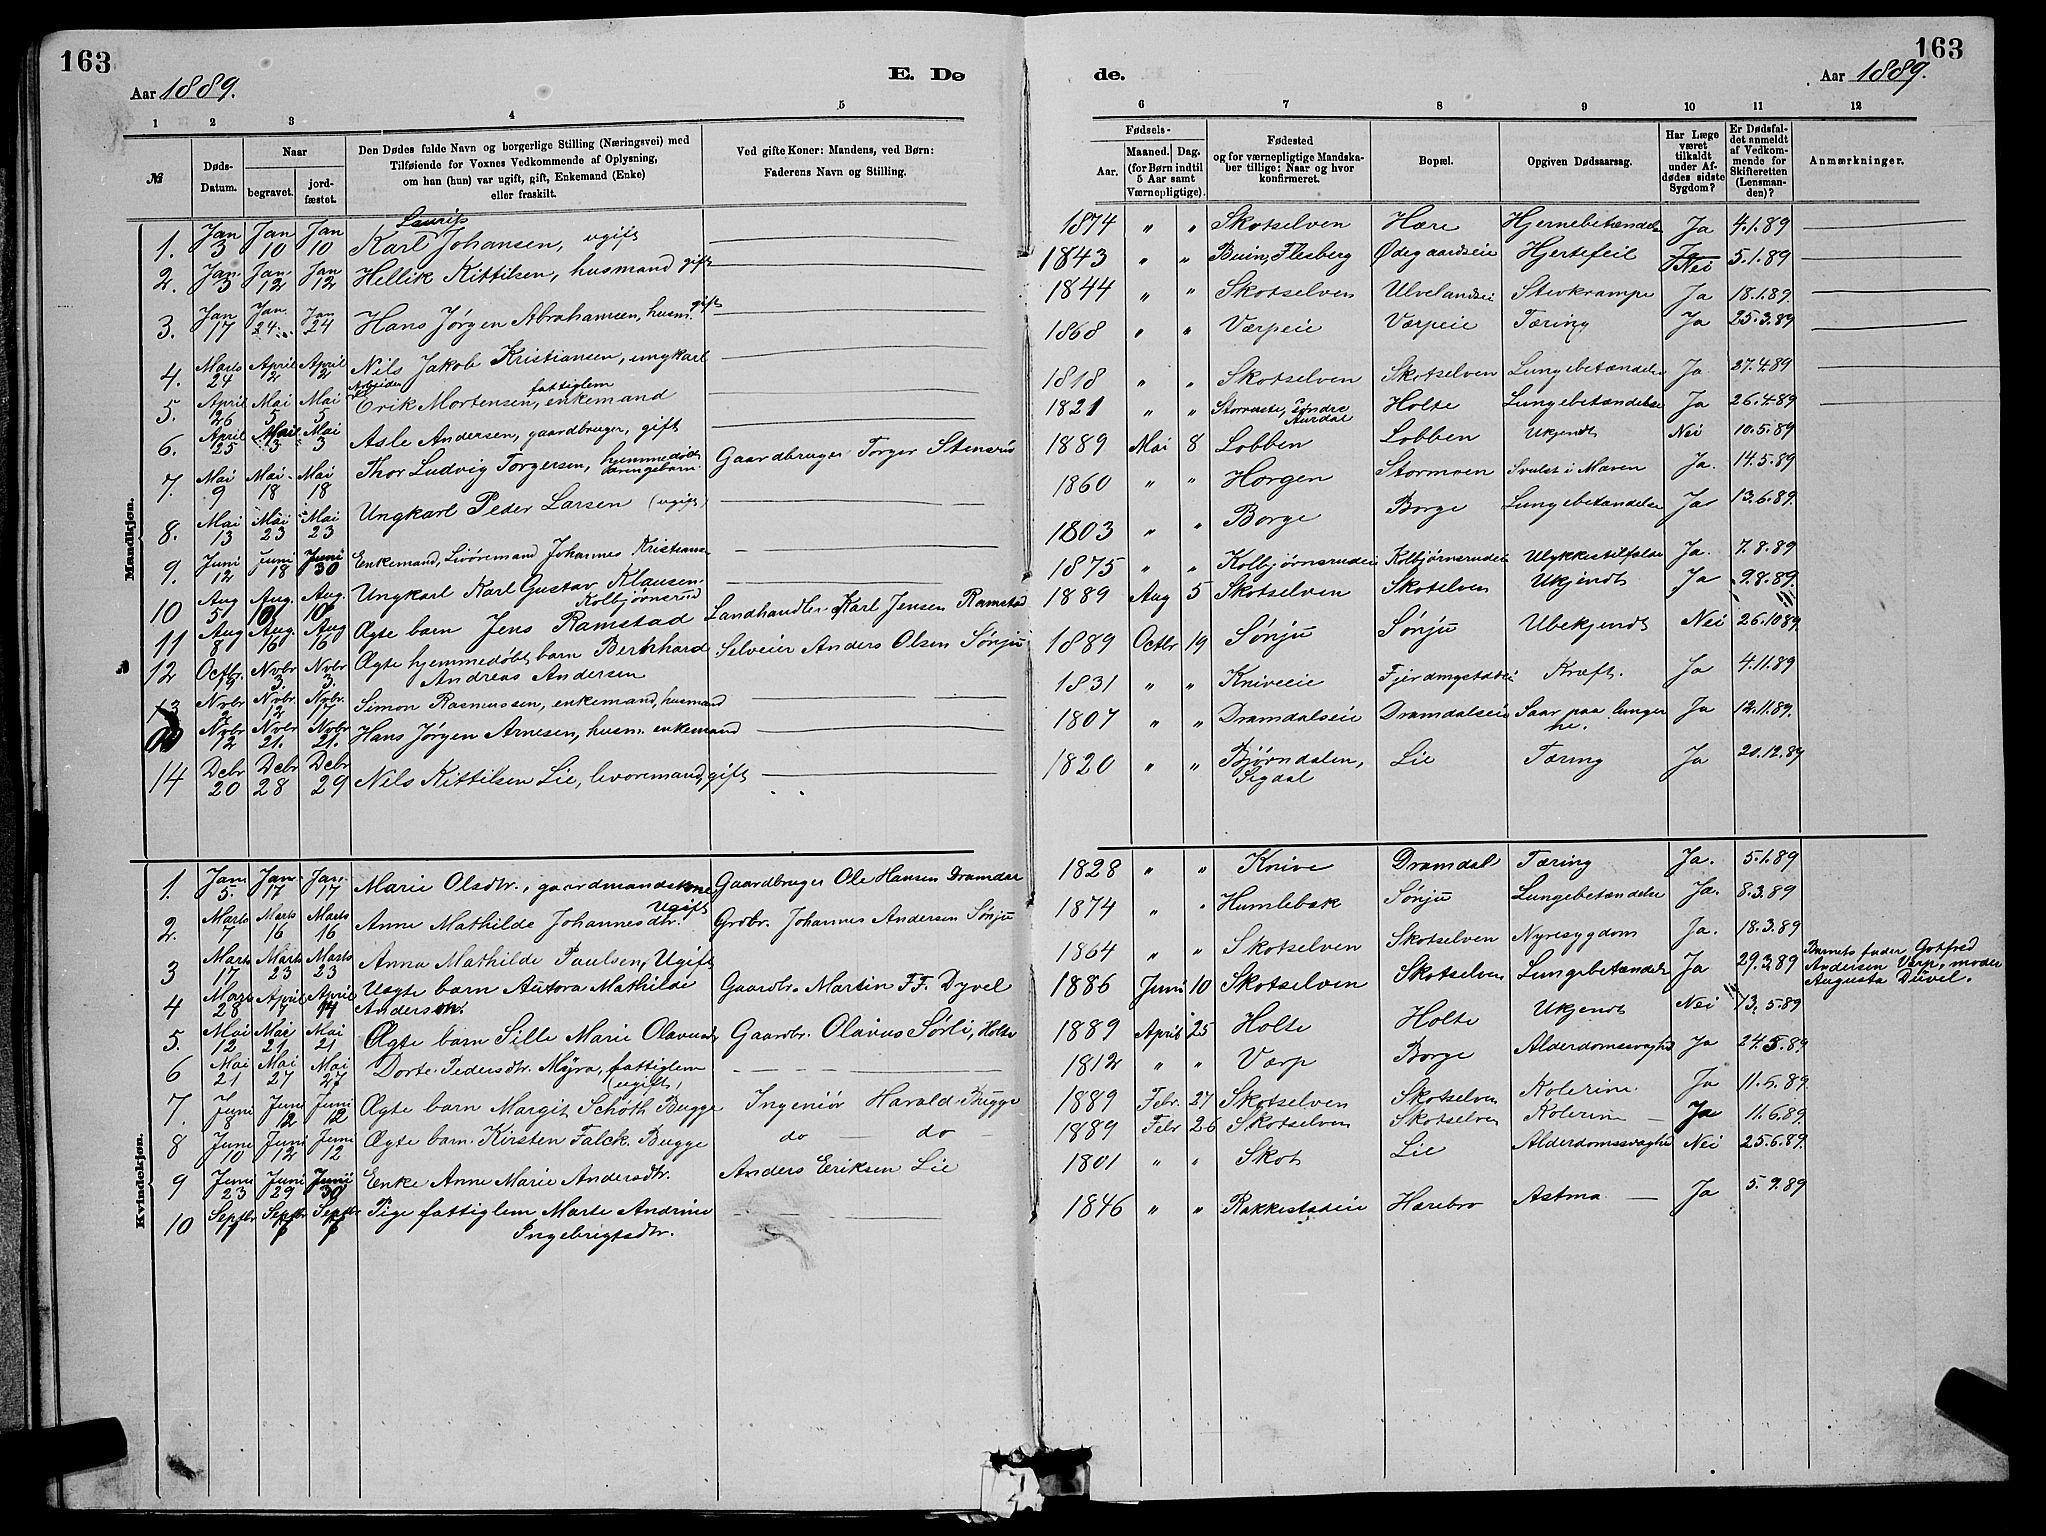 163
Aar 1889.
E. Dø
1 2 3 4 5
№
Døds-Datum.
Naar
begravet.
jordfæstet.
Den Dødes fulde Navn og borgerlige Stilling (Næringsvei) med
Tilføiende for Voxnes Vedkommende af Oplysning,
om han (hun) var ugift, gift, Enkemand (Enke)
eller fraskilt.
Ved gifte Koner: Mandens, ved Børn:
Faderens Navn og Stilling.
Mandkjøn.
1. Jan 3 Jan 10 Jan 10 Karl Laurits Johansen, ugift
2. Jan 3 Jan 12 Jan 12 Hellik Kittilsen, husmand gift
3. Jan 17 Jan 24 Jan 24 Hans Jørgen Abrahamsen, husm. gift
4. Marts 24 April 2 April 2 Nils Jakob Kristiansen, ungkarl
5. April 26 Mai 5 Mai 5 Arbeider Erik Mortensen, fattiglem enkemand
6. April 25 Mai 3 Mai 3 Asle Andersen, gaardbruger, gift
7. Mai 9 Mai 18 Mai 18 Thor Ludvig Torgersen, hjemmedøbt drengebarn Gaardbruger Torger Stensrud
8. Mai 13 Mai 23 Mai 23 Ungkarl Peder Larsen (ugift)
9. Juni 12 Juni 18 Juni 30 Enkemand, Livøremand Johannes Kristiansen
10 Aug 5. Aug. 10 Aug. 10 Ungkarl Karl Gustav Klausen Kolbjørnsrud
11 Aug 8 Aug. 16 Aug 16 Ægte barn Jens Ramstad Landhandler Karl Jensen Ramstad
12 Octbr. Nvbr 3. Nvbr 3. Ægte hjemmedøbt barn Bernhard Selveier Anders Olsen Sønju
Andreas Andersen
13 Nvbr 2 Nvbr. 12 Nvbr. 17 Simon Rasmussen, enkemand, husmand
Nvbr 12 Nvbr 21. Nvbr 21. Hans Jørgen Arnesen, husm. enkemand
14 Dcbr 20 Dcbr 28 Dcbr 29 Nils Kittilsen Lie, livøremand, gift
Kvindekjøn.
1. Jan 5. Jan. 17 Jan. 17 Marie Olsdtr., gaardmandskone Gaardbruger Ole Hansen Dramdal
2. Marts 7 Marts 16 Marts 16 Anne Mathilde Johannesdtr. Ugift Grdbr. Johannes Andersen Sønju
3 Marts 17 Marts 23 Marts 23 Anna Mathilde Paulsen, Ugift
4 Marts 28 April 7 April 14 Uægte barn Aurora Mathilde Gaardbr. Martin FF. Dyvel
Andersen.
5. Mai 12 Mai 21 Mai 21 Ægte barn Sille Marie Olavusdtr Gaardbr. Olavus Sørli, Holte
6 Mai 21 Mai 27 Mai 27 Dorte Pedersdtr. Myra, fattiglem (ugift)
7. Juni 8 Juni 12 Juni 12 Ægte barn Margit Schøth Bugge Ingeniør Harald Bugge
8 Juni 10 Juni 12 Juni 12 Ægte barn Kirsten Falck Bugge do — do —
9 Juni 23 Juni 29 Juni 30 Enke Anne Marie Andersdtr. Anders Eriksen Lie
10 Septbr 1 Septbr 6 Septbr 6 Pige fattiglem Marte Andrine
Ingebrigtsdtr.
163
de.
Aar 1889.
6 7 8 9 10 11 12
Fødsels-
Aar.
Maaned. Dag.
(for Børn indtil
5 Aar samt
Værnepligtige).
Fødested
og for værnepligtige Mandskaber
tillige: Naar og hvor
konfirmeret.
Bopæl.
Opgiven Dødsaarsag.
Har Læge
været
tilkaldt
under Afdødes
sidste
Sygdom?
Er Dødsfaldet
anmeldt
af Vedkommende
for
Skifteretten
(Lensmanden)?
Anmærkninger.
1874 " " Skotselven Hære Hjernebetændelse Ja 4.1.89
1843 " " Buin, Flesberg Ødegaardseie Hjertefeil Ja Nei 5.1.89
1844 " " Skotselven Ulvelandseie Stivkrampe Ja 18.1.89.
1868 " " Værpeie Værpeie Tæring Ja 25.3.89
1818 " " Skotselven Skotselven Lungebetændelse Ja 27.4.89
1821 " " Storruste, søndre Aurdal Holte Lungebetændelse Ja 26.4.89
1889 Mai 8 Lobben Lobben Ukjendt Nei 10.5.89
1860 " " Horgen Stormoen Svulst i Maven Ja. 14.5.89
1803 " " Borge Borge Lungebetændelse Ja 13.6.89.
1875 " " Kolbjørnsrudeie Kolbjørnsrudeie Ulykkestilfælde Ja. 7.8.89
1889 Aug 5 Skotselven Skotselven Ukjendt Ja 9.8.89
1889 Octbr 19 Sønju Sønju Ubekjendt Nei 26.10 89.
1831 " " Kniveeie Fjerdingstadeie Kræft. Ja 4.11.89
1807 " " Dramdalseie Dramdalseie Saar paa lungerne. Ja 12.11.89.
1820 " " Bjørndalen, Sigdal Lie Tæring Ja 20.12.89
1828 " " Knive Dramdal Tæring Ja. 5.1.89
1874 " " Humlebæk Sønju Lungebetændelse Ja. 8.3.89
1864 " " Skotselven Skotselven Nyresygdom Ja. 18.3.89
1886 Juni 10 Skotselven Skotselven Lungebetændelse Ja 29.3.89 Barnets fader Gotfred
Andersen Værp, moder
Augusta Düvel.
1889 April 25 Holte Holte Ukjendt Nei 13.5.89
1812 " " Værp Borge Alderdomssvaghed Ja 24.5.89
1889 Febr. 27 Skotselven Skotselven Kolerine Ja 11.6.89
1889 Febr 26 Skotselven Skotselven Kolerine — Ja 11.6.89.
1801 " " Skot Lie Alderdomssvaghed Nei 25.6.89.
1846 " " Rakkestadeie Hærebro Astma — Ja 5.9.89